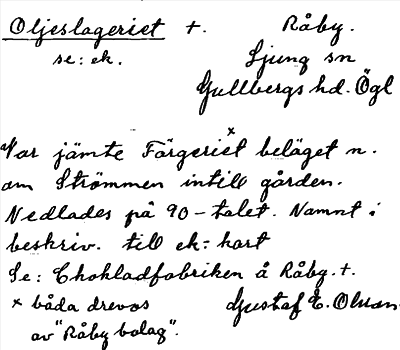 Oljeslageriet +. Råby.
se: ek. Ljung sn
Gullbergs hd. Ögl
Var jämte Färgeriet × beläget n.
om Strömmen intill gården.
Nedlades på 90-talet. Namnt i
beskriv. till ek: kart
Se: Chokladfabriken å Råby. +.
× båda drevos Gustaf E. Olsson.
av "Råby bolag".